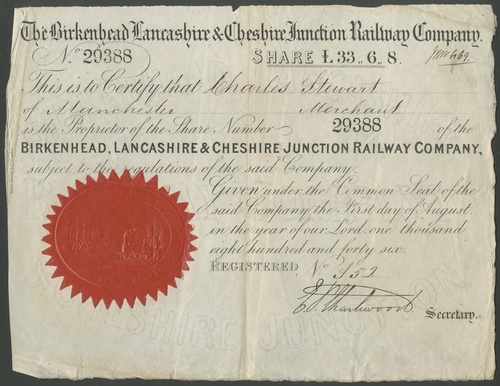 The Birkenhead Lancashire & Cheshire Junction Railway Company.
No. 29388 SHARE £33.,6.,8.
This is to Certify that Charles Stewart
of Manchester Merchant
is the Proprietor of the Share Number 29388 of the
BIRKENHEAD, LANCASHIRE & CHESHIRE JUNCTION RAILWAY COMPANY,
subject to the regulations of the said Company.
Given under the Common Seal of the
said Company, the First day of August,
in the year of our Lord one thousand
eight hundred and forty six.
REGISTERED No. 353
Secretary.
CHESHIRE JUNCTION